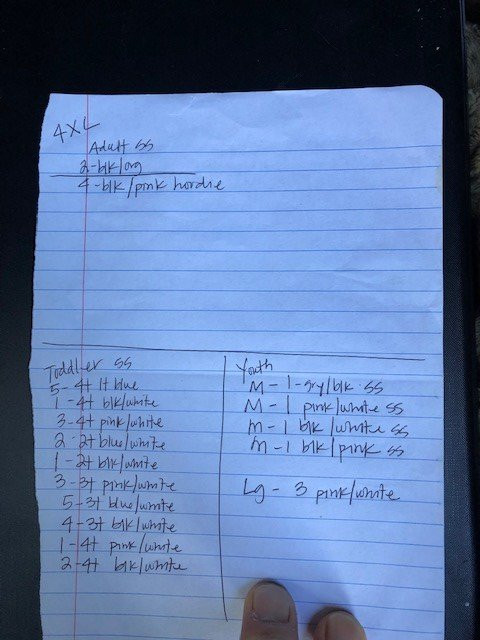 4XL
Adult SS
2-blk/org
4-blk/pink hordie
Toddler SS
5-4t lt blue
1-4t blk/white
3-4t pink/white
2-2t blue/white
1-2t blk/white
3-3t pink/white
5-3t blue/white
4-3t blk/white
1-4t pink/white
2-4t blk/white
Youth
M-1-gry/blk SS
M-1 pink/white SS
M-1 blk/white SS
M-1 blk/pink SS
Lg-3 pink/white